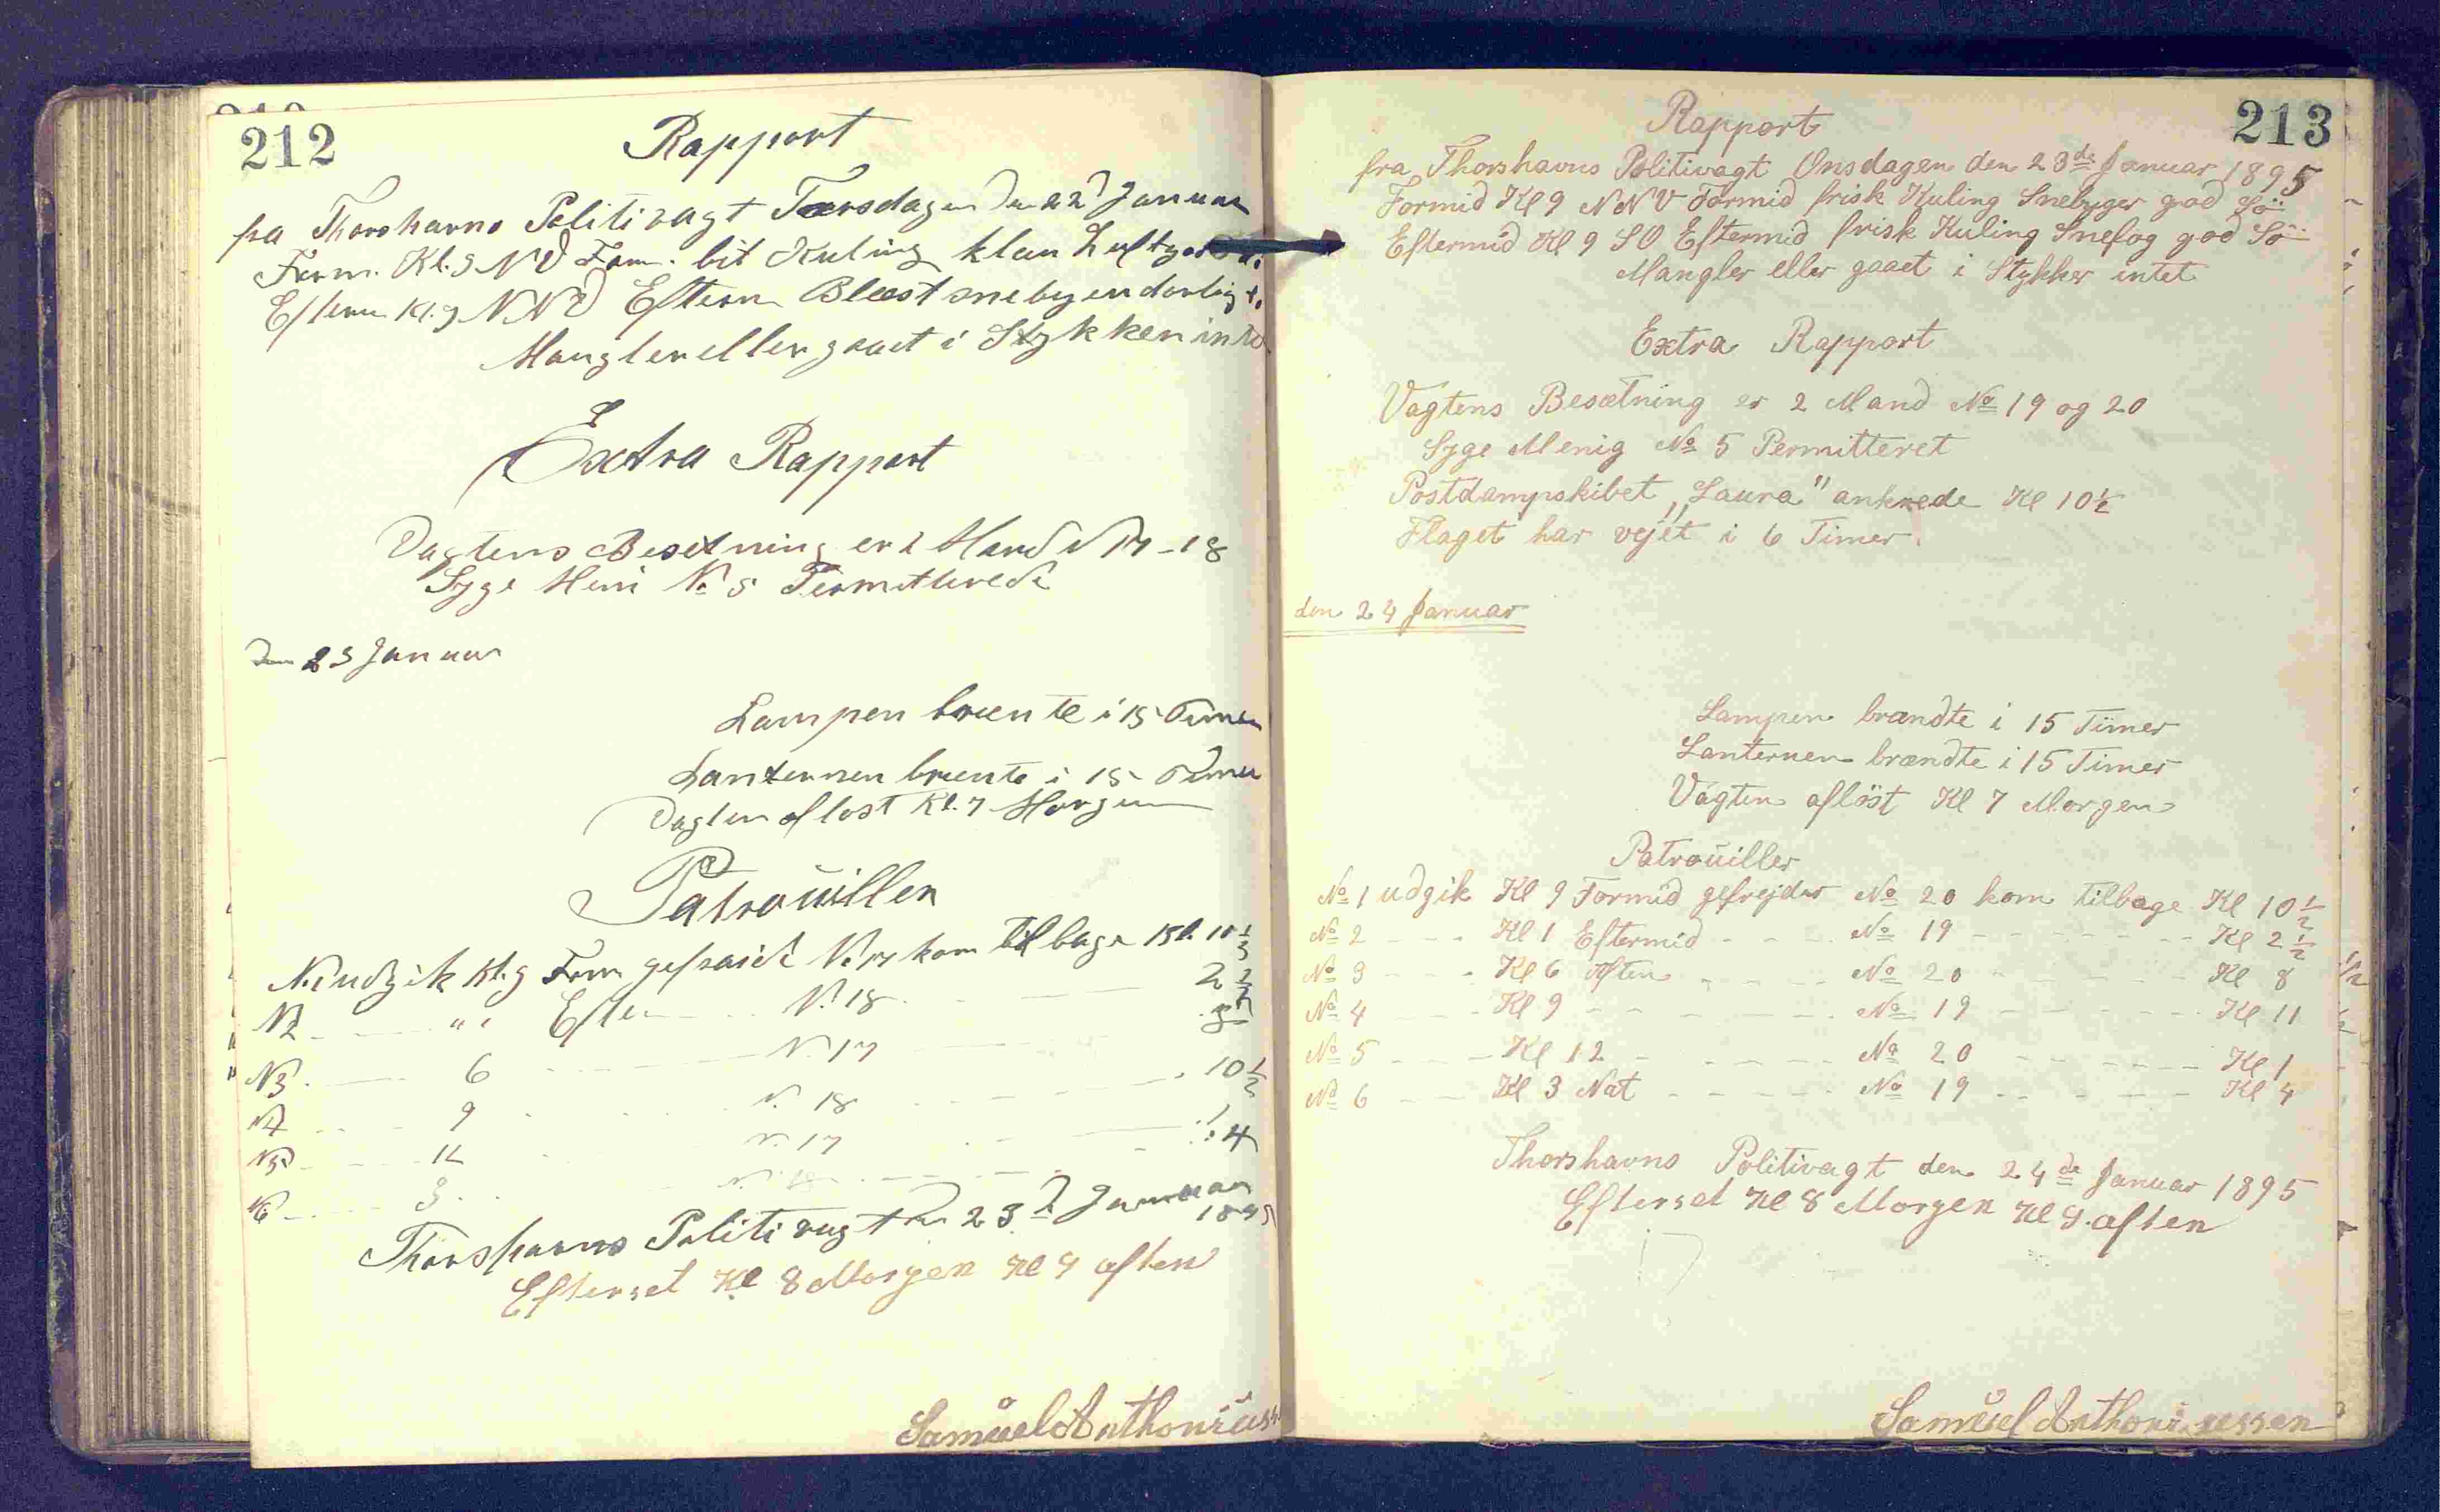 212
Rapport
fra Thorshavns Politivagt Tersdagen den 22d Januar
Form. Kl. 9 NV Form. lit Kuling klar Luft god
Efterm Kl. 9 NNV Efterm Blæst snebyer
Mangler eller gaaet i Stykker intet
Extra Rapport
Vagtens Besetning er 2 Mand N 17-18
Syge Meni No 5 Permitterede
Den 23 Januar
Lampen brente i 15 Timer
Lanternen brente i 15 Timer
Vagten aflost Kl. 7 Morgen
Patrouiller
N. 1 udgik Kl. 9 Form N. 17 kom tilbage Kl. 10 1/2
N 2 " Efter N. 18 2 1/2
N 3 6 N. 17 8
N 4 9 N. 18 10 1/2
N 5 12 N. 17 1
N 6 3 N. 18 4
Thorshavns Politivagt den 23d Januar 1895
Efterset Kl 8 Morgen Kl 9 aften
Samuel Anthoniuss
213
Rapport
fra Thorshavns Politivagt Onsdagen den 23de Januar 1895
Formid Kl 9 NNV Formid frisk Kuling Snebyger god Sö
Eftermid Kl 9 SO Eftermid frisk Kuling Snefog god Sö
Mangler eller gaaet i Stykker intet
Extra Rapport
Vagtens Besætning er 2 Mand No 19 og 20
Syge Menig No 5 Permitteret
Postdampskibet „Laura" ankrede Kl 10 1/2
Flaget har vejet i 6 Timer.
den 24 Januar
Lampen brændte i 15 Timer
Lanternen brændte i 15 Timer
Vagten aflöst Kl 7 Morgen
Patrouiller
No 1 udgik Kl 9 Formid gefrejder No 20 kom tilbage Kl 10 1/2
No 2 - - - Kl 1 Eftermid - - - No 19 - - - Kl 2 1/2
No 3 - - - Kl 6 Aften - - - No 20 - - - Kl 8
No 4 - - - Kl 9 - - - No 19 - - - Kl 11
No 5 - - - Kl 12 - - - No 20 - - - Kl 1
No 6 - - - Kl 3 Nat - - - No 19 - - - Kl 4
Thorshavns Politivagt den 24de Januar 1895
Efterset Kl 8 Morgen Kl 9. aften
Samuel Anthoniussen